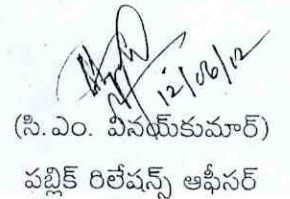 12/06/12
(సి.ఎం. వినయ్‌కుమార్)
పబ్లిక్ రిలేషన్స్ ఆఫీసర్